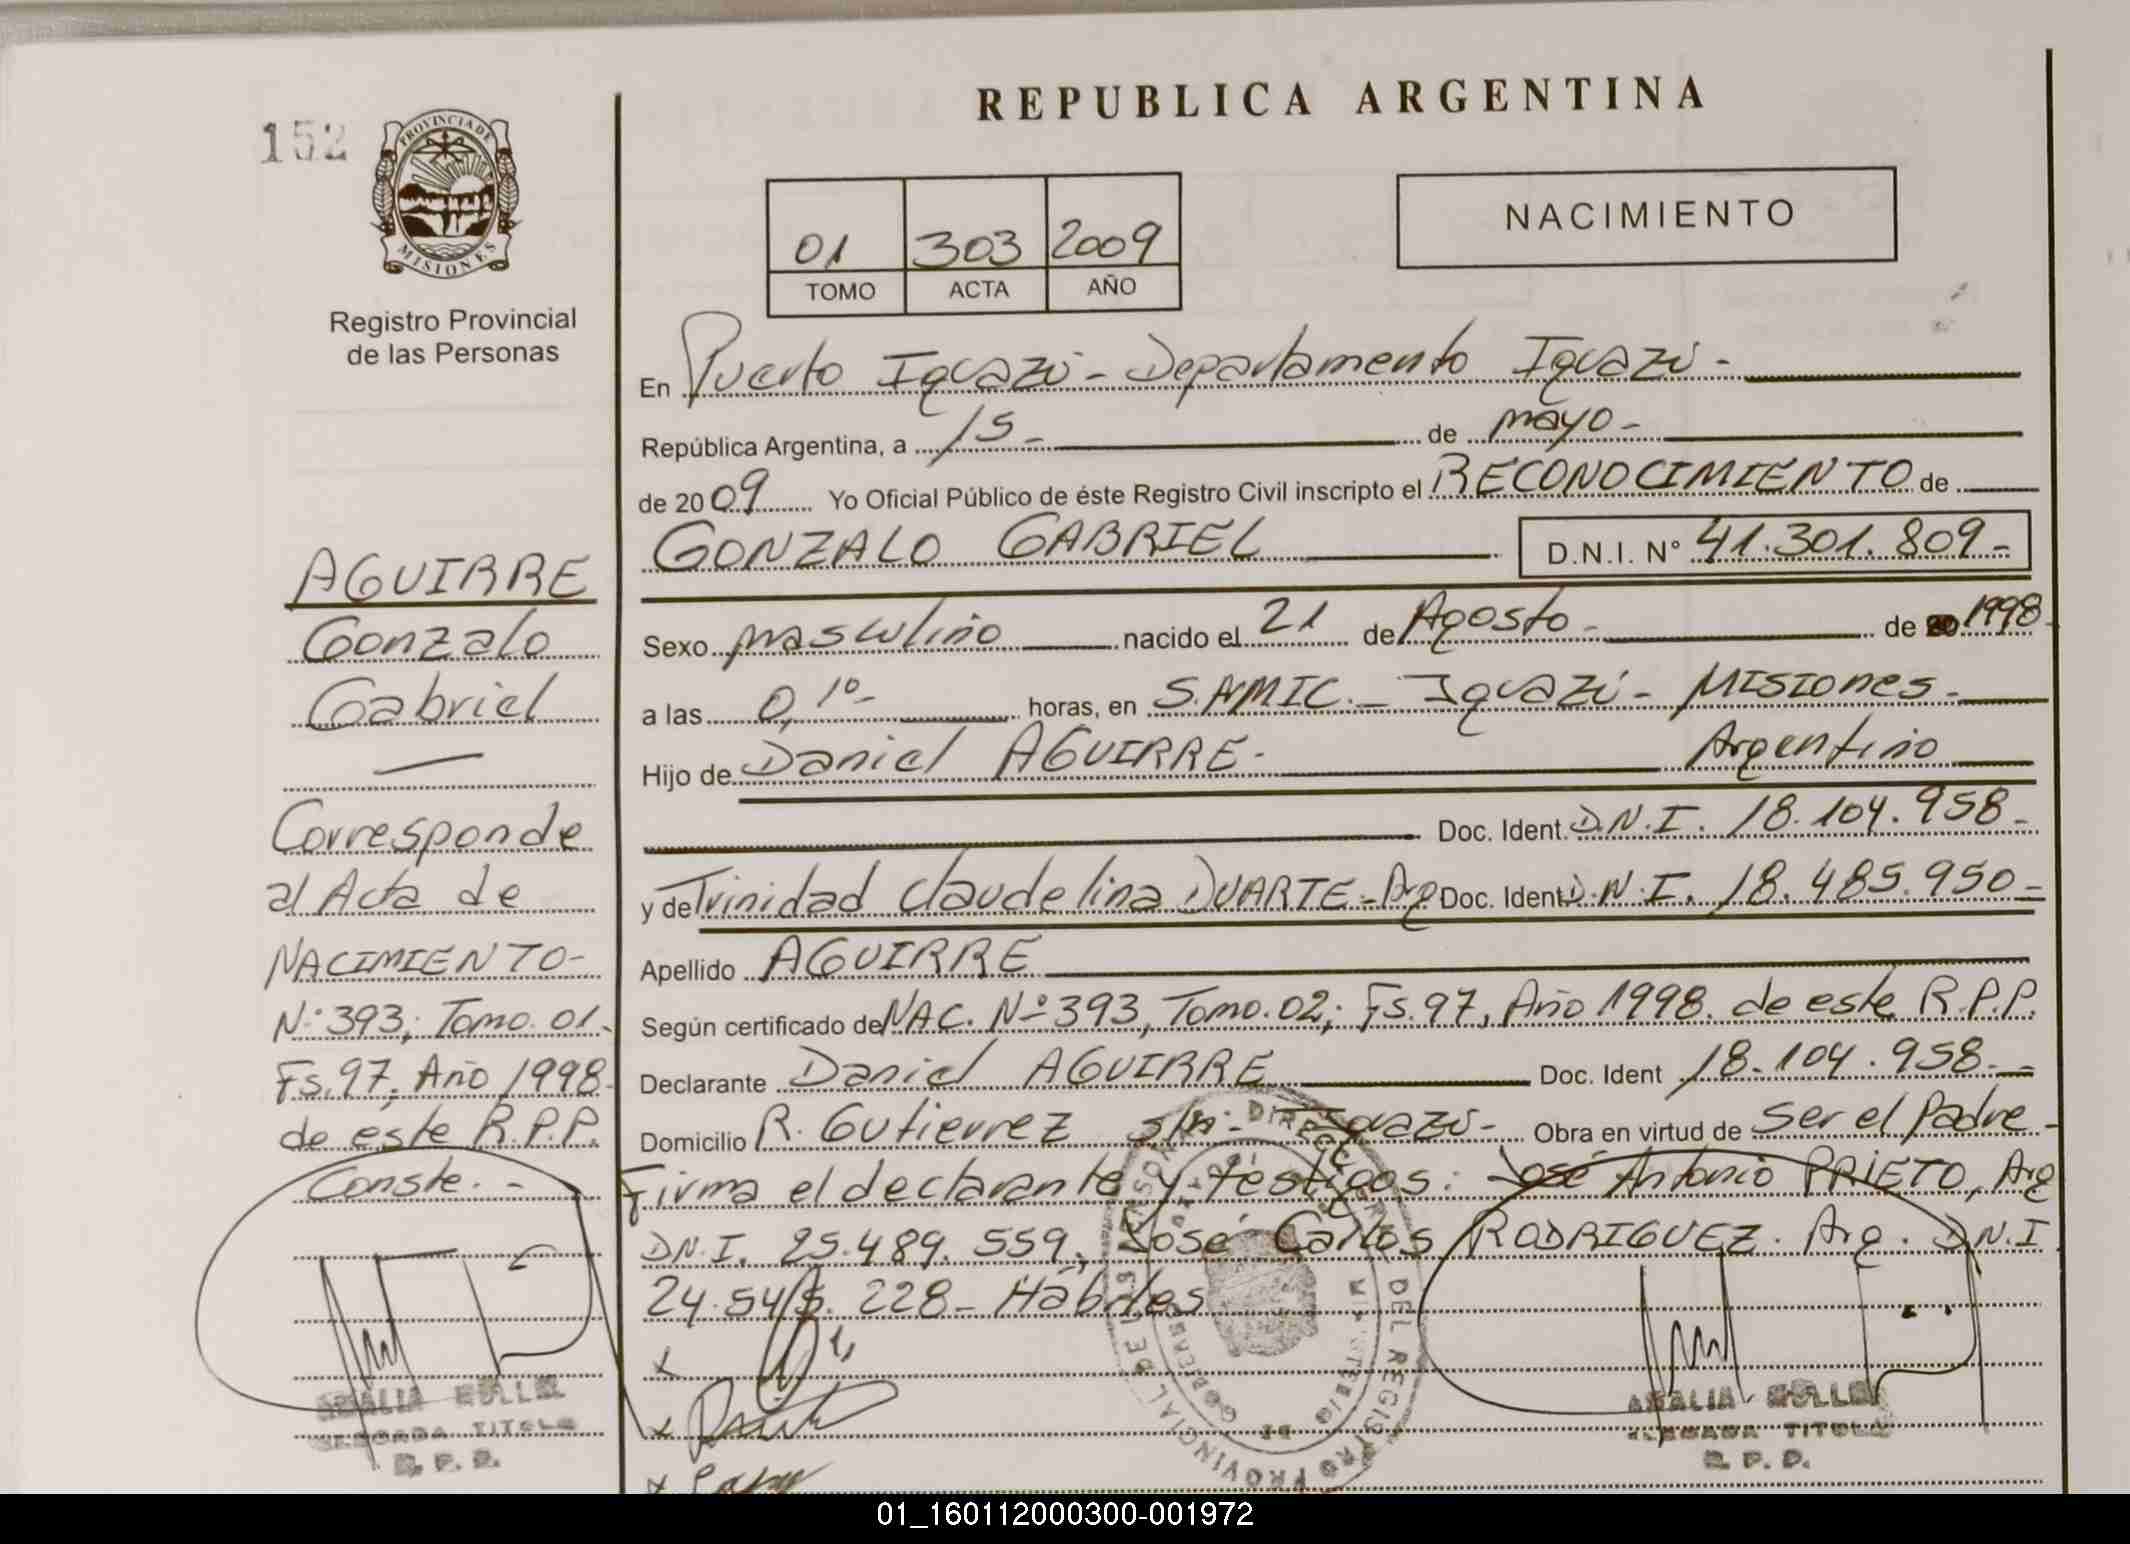 152
PROVINCIA DE
MISIONES
Registro Provincial
de las Personas
AGUIRRE
Gonzalo
Gabriel
Corresponde
al Acta de
NACIMIENTO-
N.º 393; Tomo. 01.
Fs. 97, Año 1998
de este R.P.P.
Conste. -
R. P. P.
REPUBLICA ARGENTINA
01 303 2009
TOMO ACTA AÑO
NACIMIENTO
En Puerto Iguazú - Departamento Iguazú -
República Argentina, a 15 - de mayo -
de 2009 Yo Oficial Público de éste Registro Civil inscripto el RECONOCIMIENTO de
GONZALO GABRIEL D.N.I. N° 41.301.809-
Sexo masculino nacido el 21 de Agosto - de 1998
a las 0,10- horas, en S.AMIC. - Iguazú - Misiones -
Hijo de Daniel AGUIRRE - Argentino
Doc. Ident. D.N.I. 18.104.958-
y de Trinidad Claudelina DUARTE - Arg Doc. Ident D.N.I. 18.485.950-
Apellido AGUIRRE
Según certificado de NAC. Nº 393, Tomo. 02; Fs. 97, Año 1998. de este R.P.P.
Declarante Daniel AGUIRRE Doc. Ident 18.104.958-
Domicilio R. Gutierrez s/n - Iguazú - Obra en virtud de Ser el Padre -
Firma el declarante y testigos: José Antonio PRIETO, Arg
D.N.I. 25.489.559, José Carlos RODRIGUEZ. Arg. D.N.I
228- Hábiles
TITULAR
R. P. P.
01_160112000300-001972